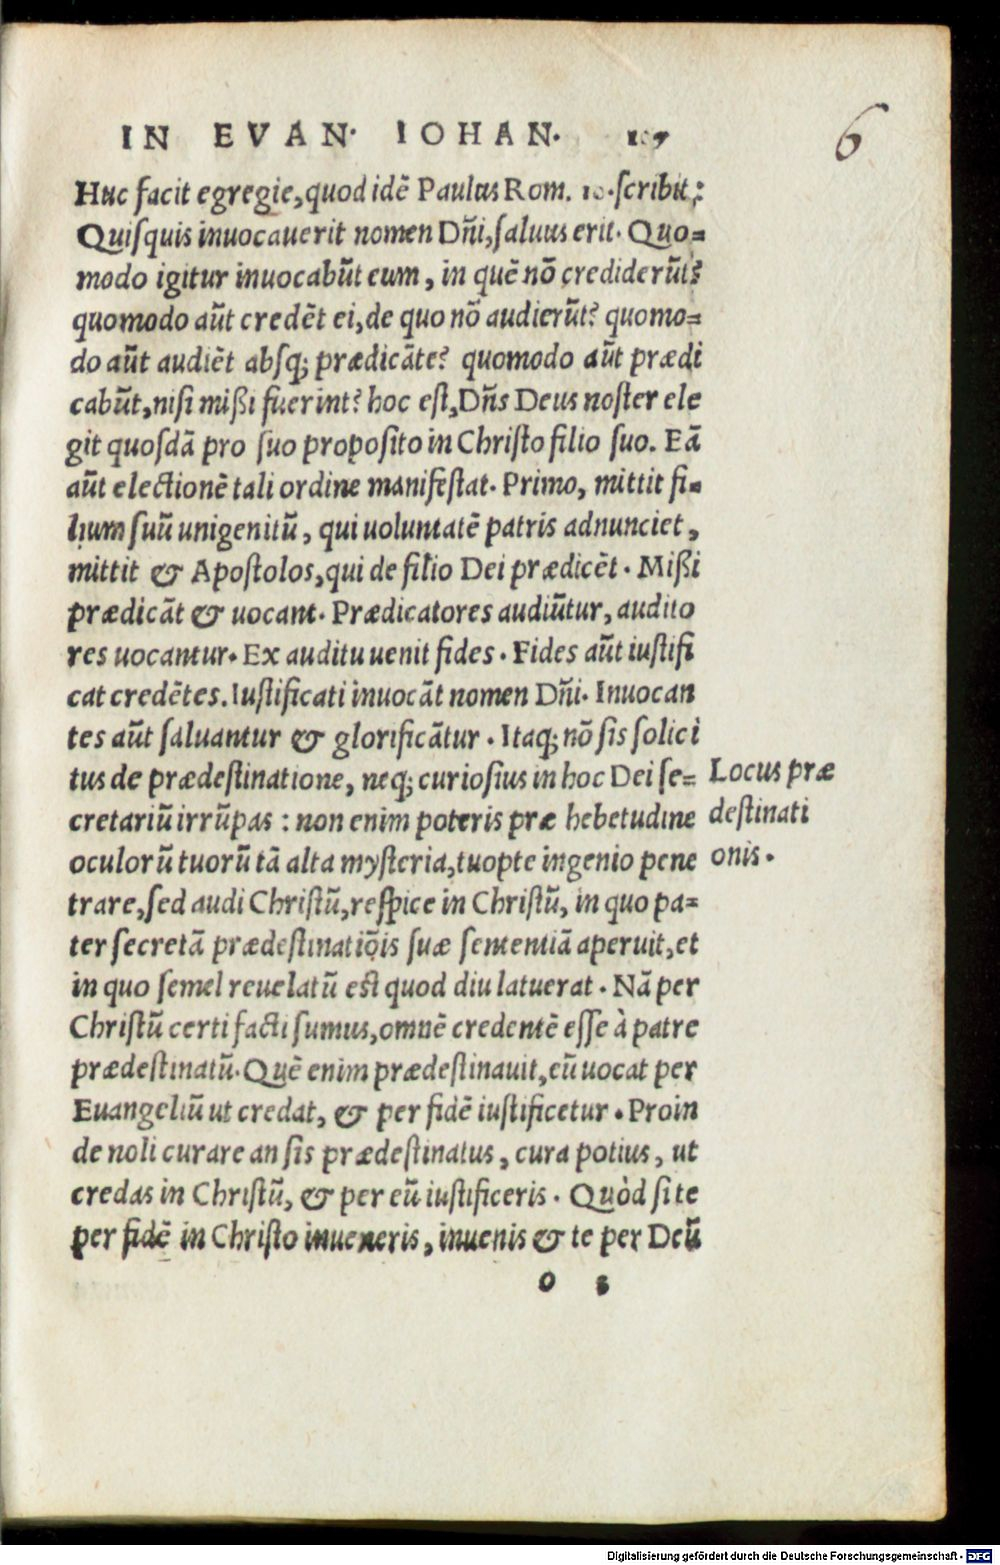 IN EVAN. IOHAN. 107
6
Huc facit egregie, quod idē Paulus Rom. 10. scribit:
Quisquis inuocauerit nomen Dñi, saluus erit. Quo=
modo igitur inuocabūt eum, in quē nō crediderūt?
quomodo aūt credēt ei, de quo nō audierūt? quomo=
do aūt audiēt absq; prædicāte? quomodo aūt prædi
cabūt, nisi mißi fuerint? hoc est, Dñs Deus noster ele
git quosdā pro suo proposito in Christo filio suo. Eā
aūt electionē tali ordine manifestat. Primo, mittit fi=
lium suū unigenitū, qui uoluntatē patris adnunciet,
mittit & Apostolos, qui de filio Dei prædicēt. Mißi
prædicāt & uocant. Prædicatores audiūtur, audito
res uocantur. Ex auditu uenit fides. Fides aūt iustifi
cat credētes. Iustificati inuocāt nomen Dñi. Inuocan
tes aūt saluantur & glorificātur. Itaq; nō sis solici
tus de prædestinatione, neq; curiosius in hoc Dei se=
cretariū irrūpas: non enim poteris præ hebetudine
oculorū tuorū tā alta mysteria, tuopte ingenio pene
trare, sed audi Christū, respice in Christū, in quo pa=
ter secretā prædestinatiōis suæ sententiā aperuit, et
in quo semel reuelatū est quod diu latuerat. Nā per
Christū certi facti sumus, omnē credentē esse à patre
prædestinatū. Quē enim prædestinauit, eū uocat per
Euangeliū ut credat, & per fidē iustificetur. Proin
de noli curare an sis prædestinatus, cura potius, ut
credas in Christū, & per eū iustificeris. Quòd si te
per fidē in Christo inueneris, inuenis & te per Deū
Locus præ
destinati
onis.
o 5
Digitalisierung gefördert durch die Deutsche Forschungsgemeinschaft - DFG